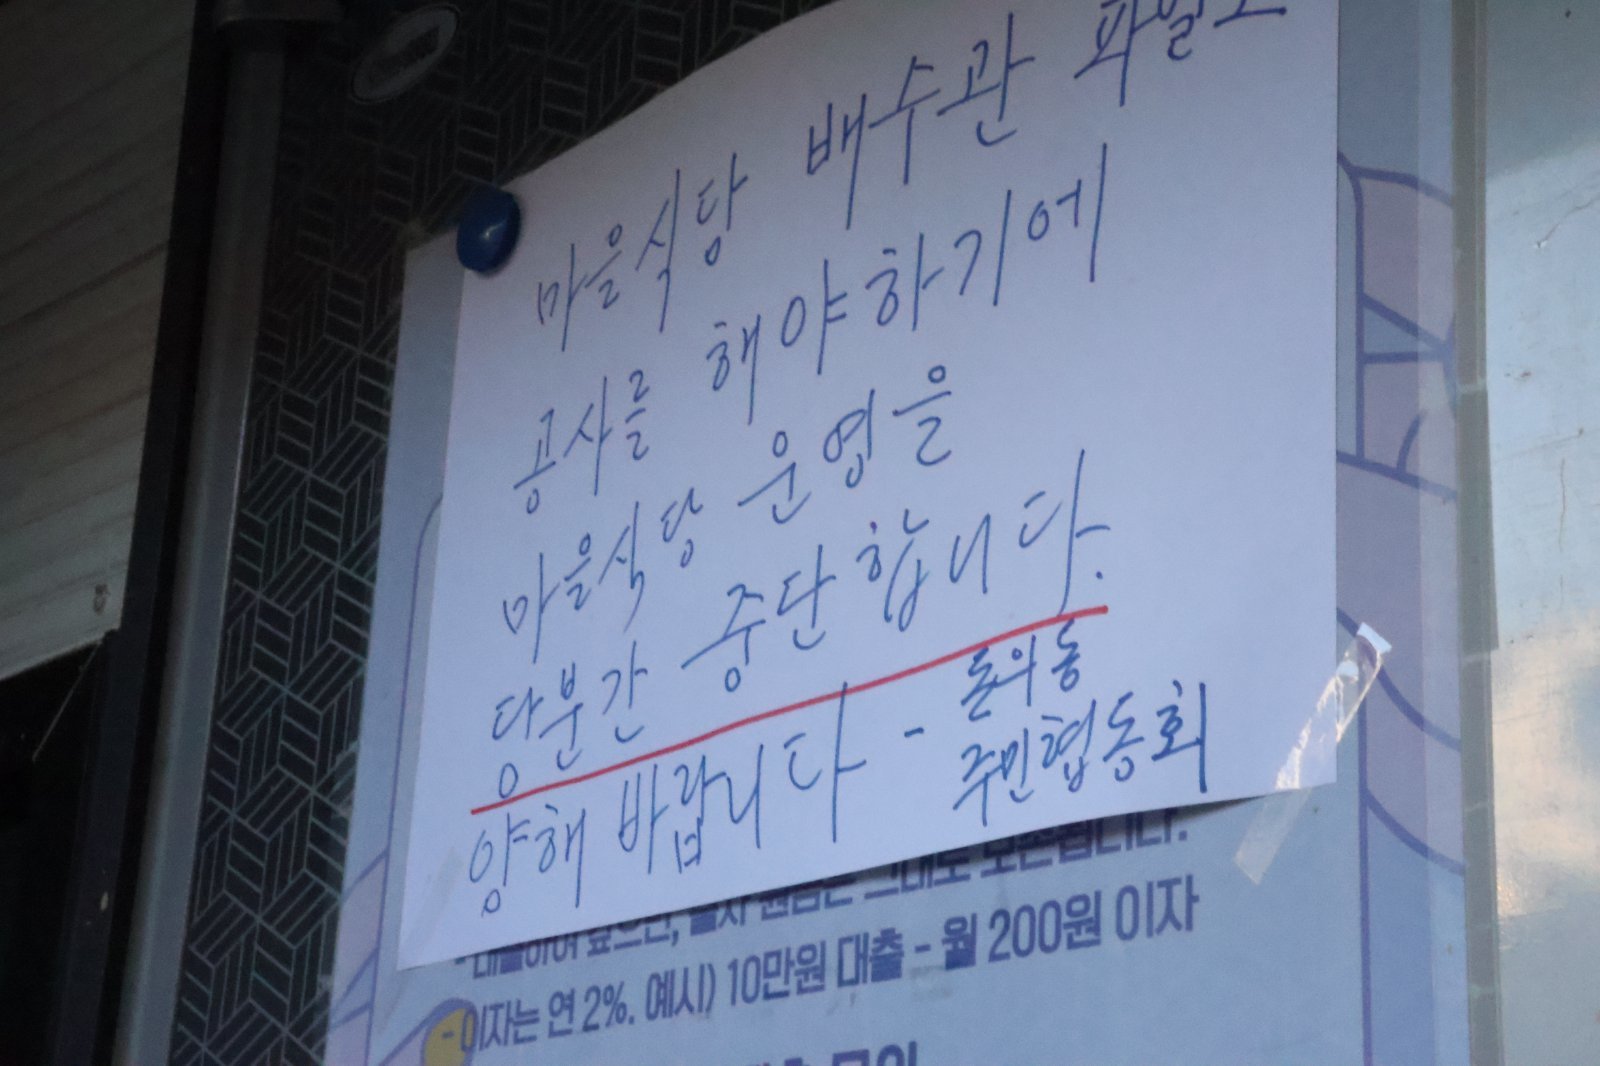 마을식당 배수관 파열로
공사를 해야하기에
마을식당 운영을
당분간 중단합니다.
양해 바랍니다 - 돈의동
주민협동회
- 대출하여 갚으면, 출자 원금은 그대로 보존됩니다.
- 이자는 연 2%. 예시) 10만원 대출 - 월 200원 이자